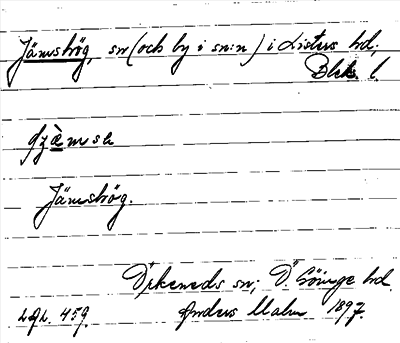 Jämshög, sn (och by i sn:n) i Listers hd,
Blek. l.
Jämshög.
Örkeneds sn; Ö. Göinge hd.
Lgl. 459. Anders Malm 1897.